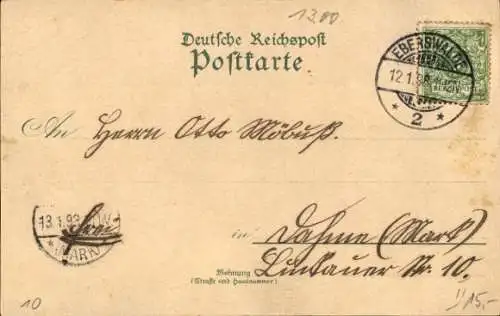 13.00
Deutsche Reichspost
Postkarte
EBERSWALDE
12.1.98
* 2 *
An Herrn Otto Möbuß.
13.1.98
frei
(MARK)
in Dahme (Mark)
Wohnung
(Straße und Hausnummer)
Luckauer Str. 10.
10
15.-